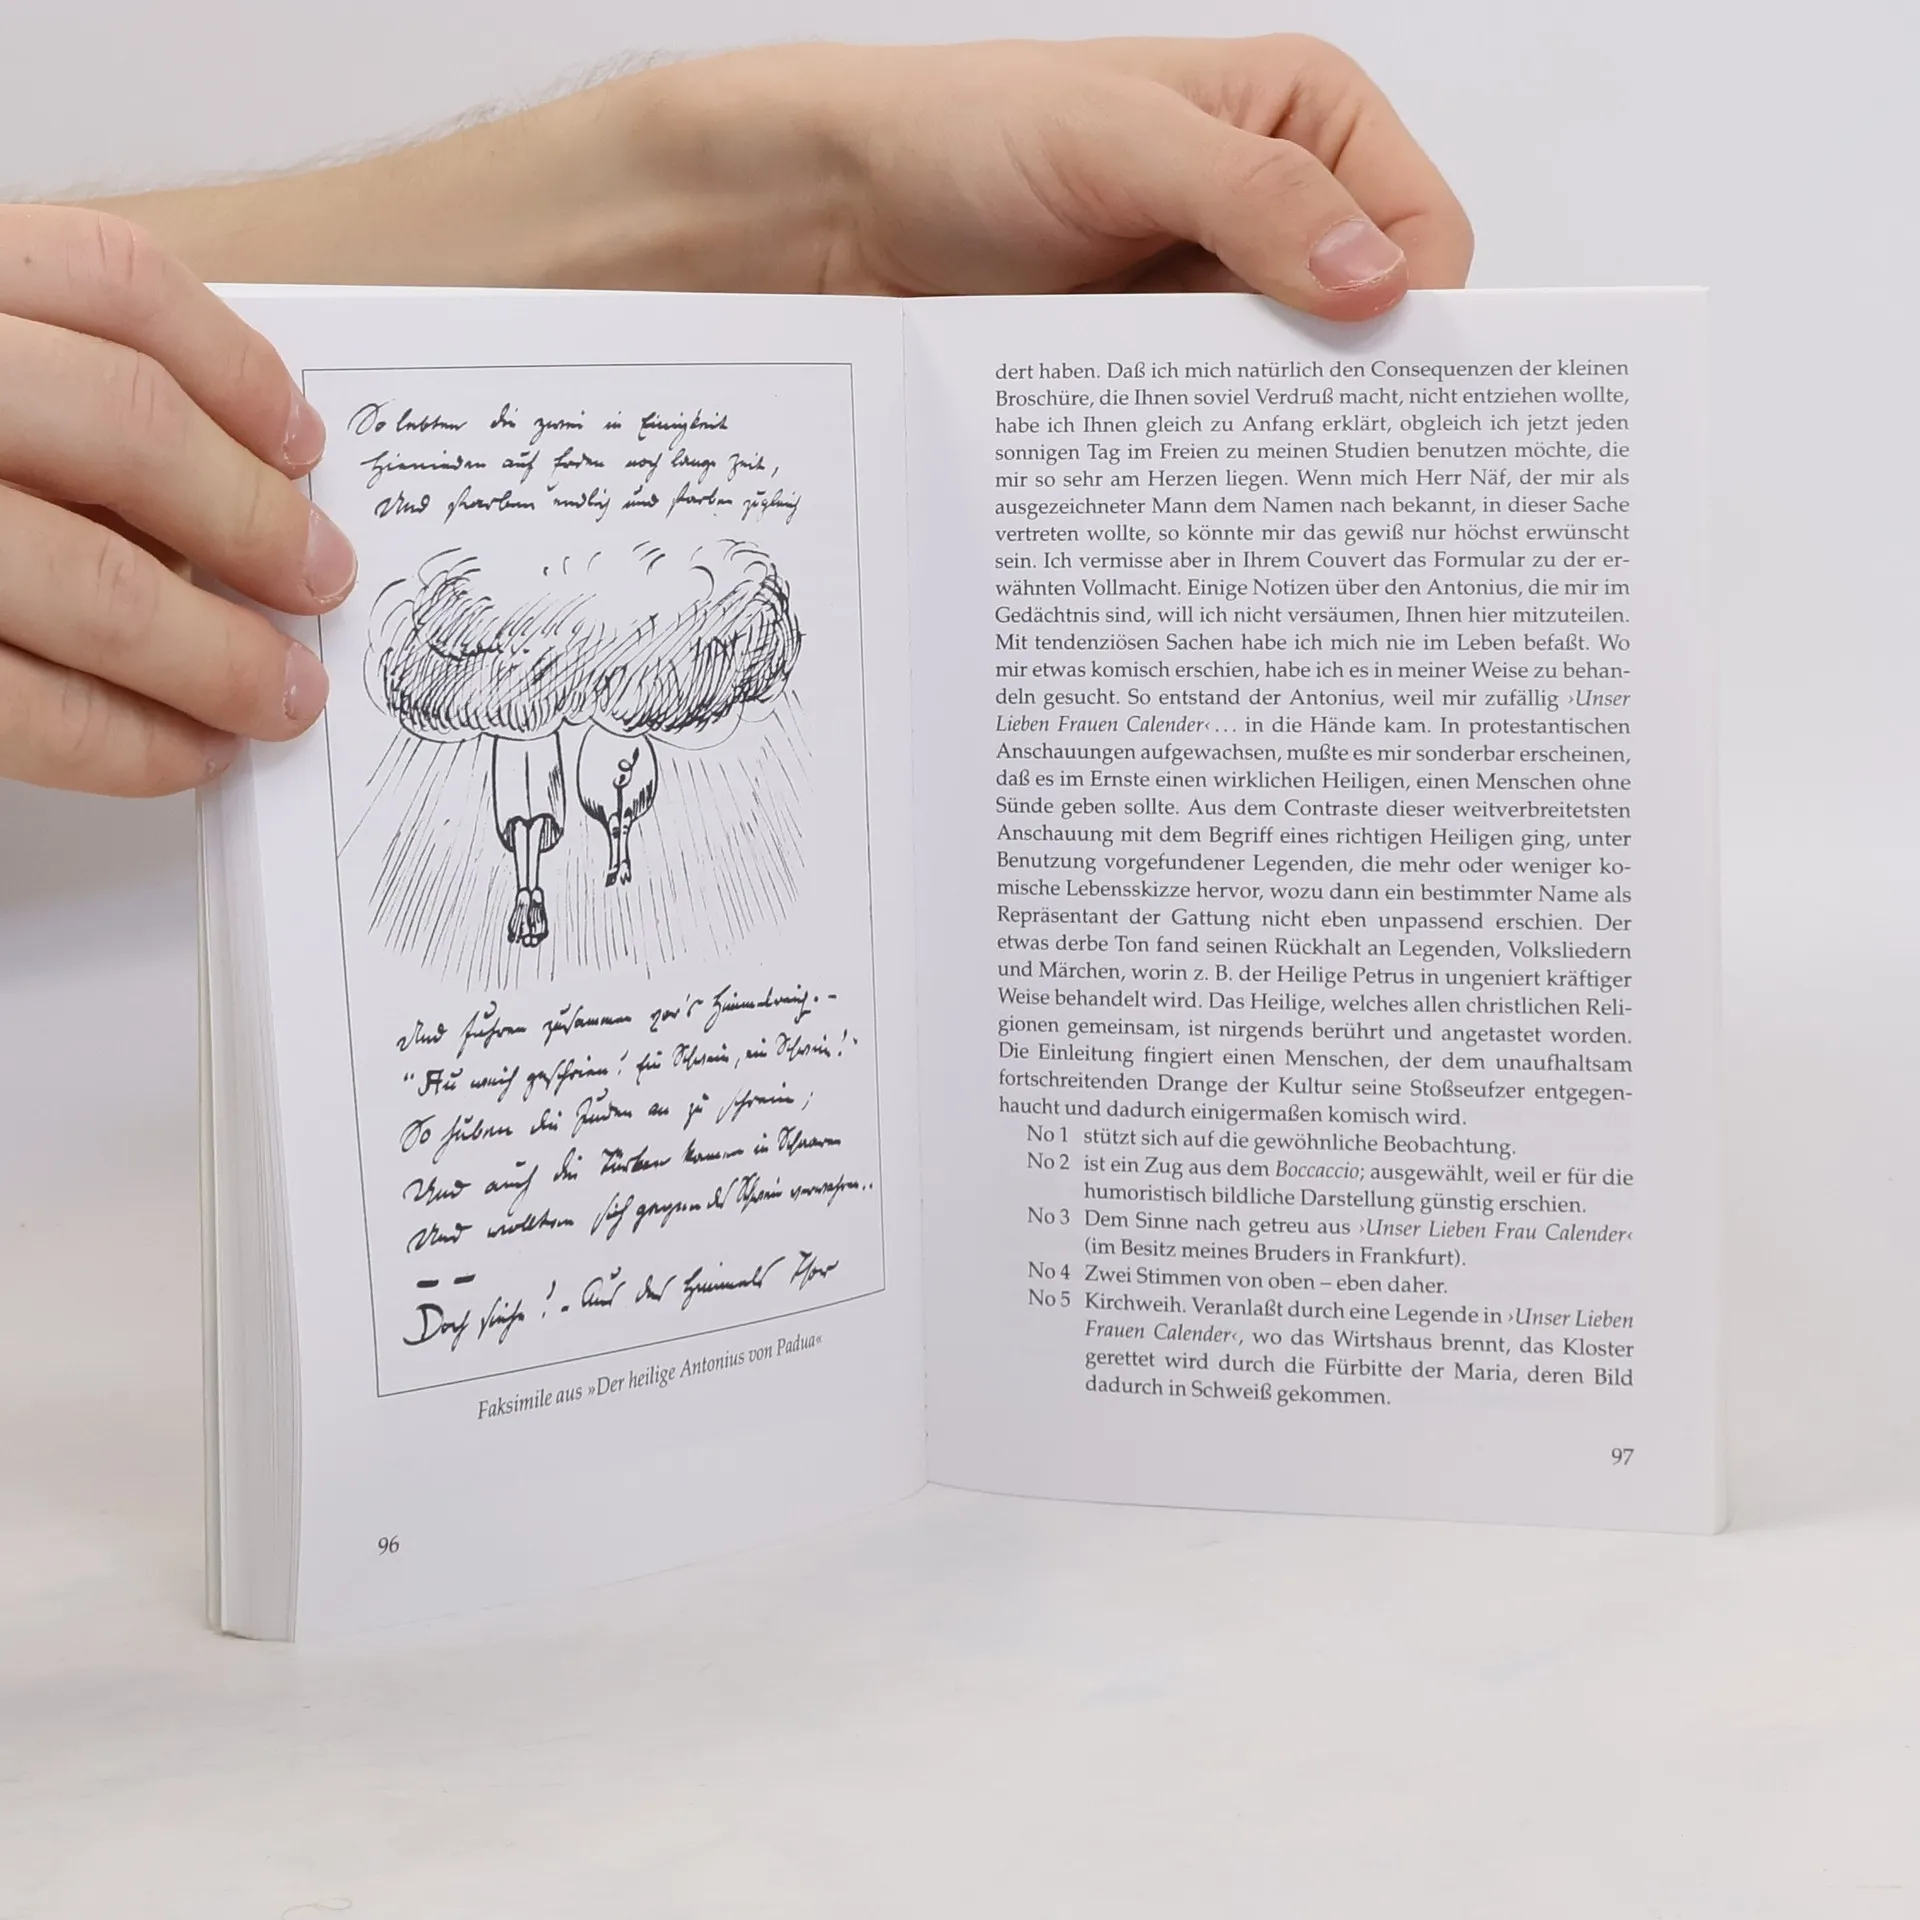 So lebten die zwei in Einigkeit
Hienieden auf Erden noch lange Zeit,
Und starben endlich und starben zugleich
Und fuhren zusammen vor's Himmelreich. –
"Au waih geschrien! Ein Schwein, ein Schwein!"
So huben die Juden an zu schrein;
Und auch die Türken kamen in Schaaren
Und wollten sich gegen das Schwein verwahren..
– –
Doch siehe! – Aus des Himmels Thor
Faksimile aus »Der heilige Antonius von Padua«
96
dert haben. Daß ich mich natürlich den Consequenzen der kleinen
Broschüre, die Ihnen soviel Verdruß macht, nicht entziehen wollte,
habe ich Ihnen gleich zu Anfang erklärt, obgleich ich jetzt jeden
sonnigen Tag im Freien zu meinen Studien benutzen möchte, die
mir so sehr am Herzen liegen. Wenn mich Herr Näf, der mir als
ausgezeichneter Mann dem Namen nach bekannt, in dieser Sache
vertreten wollte, so könnte mir das gewiß nur höchst erwünscht
sein. Ich vermisse aber in Ihrem Couvert das Formular zu der er-
wähnten Vollmacht. Einige Notizen über den Antonius, die mir im
Gedächtnis sind, will ich nicht versäumen, Ihnen hier mitzuteilen.
Mit tendenziösen Sachen habe ich mich nie im Leben befaßt. Wo
mir etwas komisch erschien, habe ich es in meiner Weise zu behan-
deln gesucht. So entstand der Antonius, weil mir zufällig ›Unser
Lieben Frauen Calender‹ ... in die Hände kam. In protestantischen
Anschauungen aufgewachsen, mußte es mir sonderbar erscheinen,
daß es im Ernste einen wirklichen Heiligen, einen Menschen ohne
Sünde geben sollte. Aus dem Contraste dieser weitverbreitetsten
Anschauung mit dem Begriff eines richtigen Heiligen ging, unter
Benutzung vorgefundener Legenden, die mehr oder weniger ko-
mische Lebensskizze hervor, wozu dann ein bestimmter Name als
Repräsentant der Gattung nicht eben unpassend erschien. Der
etwas derbe Ton fand seinen Rückhalt an Legenden, Volksliedern
und Märchen, worin z. B. der Heilige Petrus in ungeniert kräftiger
Weise behandelt wird. Das Heilige, welches allen christlichen Reli-
gionen gemeinsam, ist nirgends berührt und angetastet worden.
Die Einleitung fingiert einen Menschen, der dem unaufhaltsam
fortschreitenden Drange der Kultur seine Stoßseufzer entgegen-
haucht und dadurch einigermaßen komisch wird.
No 1 stützt sich auf die gewöhnliche Beobachtung.
No 2 ist ein Zug aus dem Boccaccio; ausgewählt, weil er für die
humoristisch bildliche Darstellung günstig erschien.
No 3 Dem Sinne nach getreu aus ›Unser Lieben Frau Calender‹
(im Besitz meines Bruders in Frankfurt).
No 4 Zwei Stimmen von oben – eben daher.
No 5 Kirchweih. Veranlaßt durch eine Legende in ›Unser Lieben
Frauen Calender‹, wo das Wirtshaus brennt, das Kloster
gerettet wird durch die Fürbitte der Maria, deren Bild
dadurch in Schweiß gekommen.
97